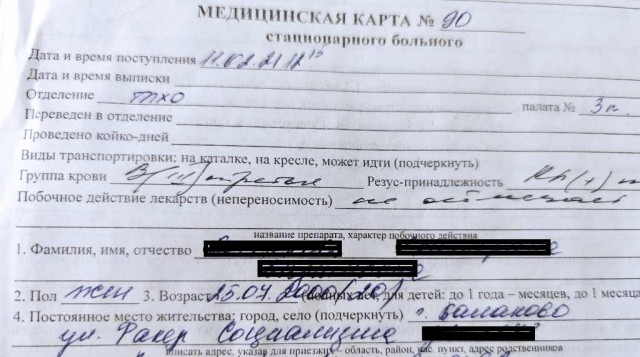 МЕДИЦИНСКАЯ КАРТА № 90
стационарного больного
Дата и время поступления 11.02.21 12 15
Дата и время выписки
Отделение ТХО палата № 3п.
Переведен в отделение
Проведено койко-дней
Виды транспортировки: на каталке, на кресле, может идти (подчеркнуть)
Группа крови В(III) третья Резус-принадлежность Rh(+)
Побочное действие лекарств (непереносимость) не отмечает
название препарата, характер побочного действия
1. Фамилия, имя, отчество
2. Пол жен 3. Возраст 25.07.2000 (20) для детей: до 1 года – месяцев, до 1 месяца
4. Постоянное место жительства: город, село (подчеркнуть) г. Балаково
ул. Факел Социализма
вписать адрес, указав для приезжих – область, район, нас. пункт, адрес родственников